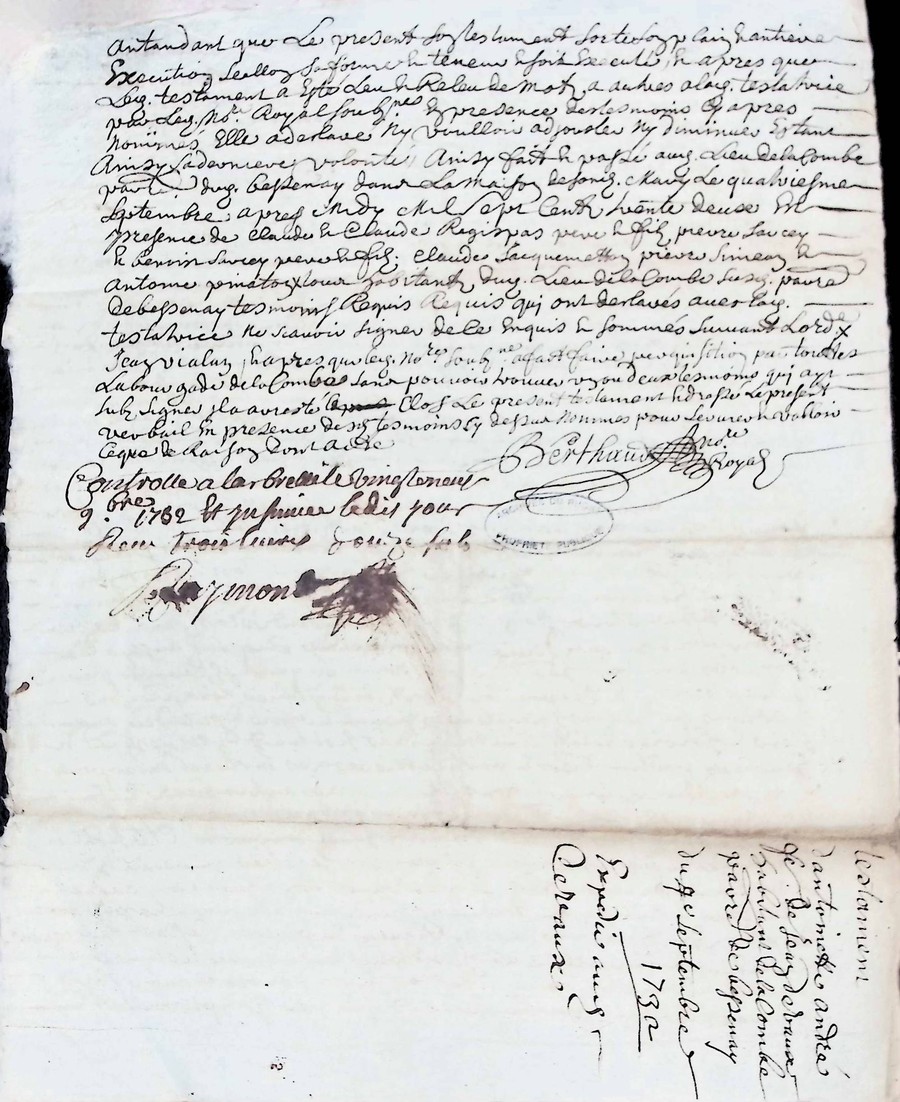 antandant que Le present son testament sorte son plain & antiere
Execution sellon sa forme & teneur & soit Executé, & apres que
Led. testament a Esté Leu & Releu de mot, a autres a lad. testatrice
par Led. Nore Royal soubne En presence des tesmoins Cy apres
Nommés, Elle a declaré Ny voulloir adjouter Ny diminuer Estant
Ainsy sa derniere volonté, Ainsy fait & passé aud. Lieu de la Combe
parr. dud. bessenay dans La maison de sond. Mary Le quatriesme
septembre apres Midy Mil sept Cents trente deux En
presence de Claude & Claude Ragis pas pere & fils, pierre sarcey
& benoist sarcey pere & fils, Claude Jacquemetton pierre simean &
antoine pinaton tous habitants dud. Lieu de la Combe susd. parre
de bessenay tesmoins Requis Requis qui ont declarés avec lad.
testatrice Ne scavoir signer de Ce Enquis & sommés suivant Lorde
Jean vialan, & apres que led. Nore soubne a fait faire perquisition par toutte
La bourgade de la Combe sans pouvoir trouver un ou deux tesmoins qui ayt
sub signer, il a arresté Clos Le present testament & dressé Le present
verbail En presence desd. tesmoins Cy dessus Nommes pour servir & valloir
Ce que de Raison dont acte
Berthaud nore Royal
Controlle a larbresle le vingt neuf
9.bre 1732 Et insinué ledit jour
Reçu trois livres douze sols
Raymond
testament
d'antoinette andré
fe. de Jean devaux
habitant de la Combe
parre de bessenay
du 4e septembre
1732
Expedié aud.
Devaux